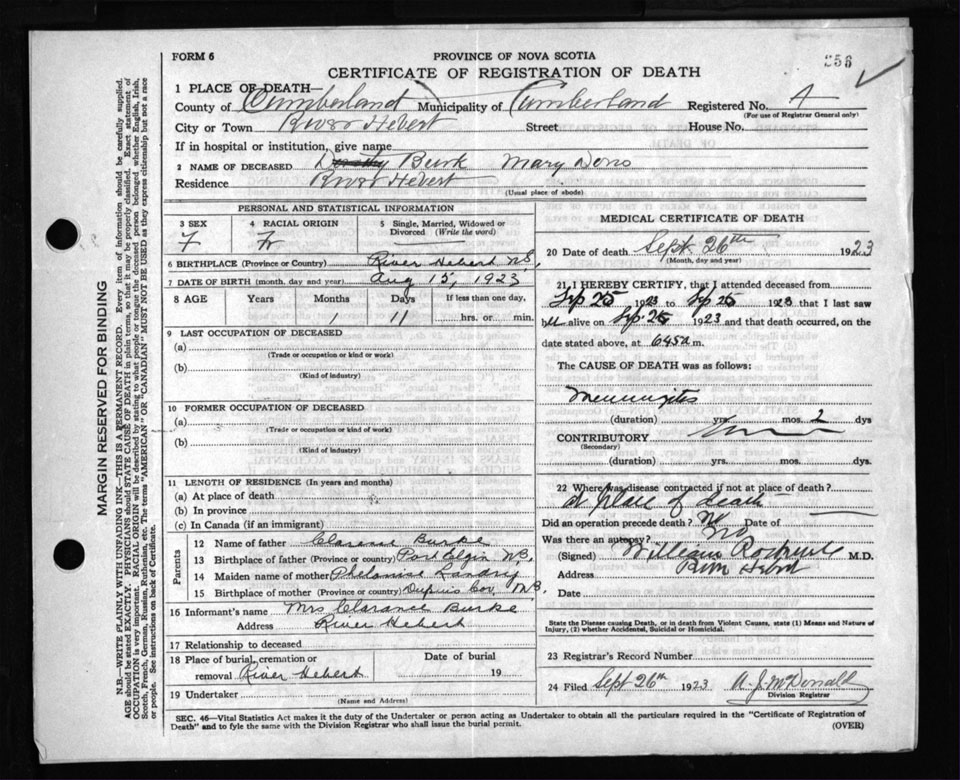 FORM 6
PROVINCE OF NOVA SCOTIA
256
CERTIFICATE OF REGISTRATION OF DEATH
1 PLACE OF DEATH—
County of Cumberland Municipality of Cumberland Registered No. A
(For use of Registrar General only)
City or Town River Hebert Street House No.
If in hospital or institution, give name
2 NAME OF DECEASED Burk Mary
Residence River Hebert
(Usual place of abode)
PERSONAL AND STATISTICAL INFORMATION
3 SEX
F
4 RACIAL ORIGIN
Fr
5 Single, Married, Widowed or Divorced (Write the word)
6 BIRTHPLACE (Province or Country) River Hebert N.S.
7 DATE OF BIRTH (month, day and year) Aug 15, 1923
8 AGE Years Months Days If less than one day,
1 11 hrs. or min.
9 LAST OCCUPATION OF DECEASED
(a)
(Trade or occupation or kind or work)
(b)
(Kind of industry)
10 FORMER OCCUPATION OF DECEASED
(a)
(Trade or occupation or kind or work)
(b)
(Kind of industry)
11 LENGTH OF RESIDENCE (In years and months)
(a) At place of death
(b) In province
(c) In Canada (if an immigrant)
Parents
12 Name of father Clarence Burke
13 Birthplace of father (Province or country) Port Elgin N.B.
14 Maiden name of mother Landry
15 Birthplace of mother (Province or country) Dupuis Cor. N.B.
16 Informant's name Mrs Clarance Burke
Address River Hebert
17 Relationship to deceased
18 Place of burial, cremation or removal River Hebert
Date of burial 19
19 Undertaker
(Name and Address)
MEDICAL CERTIFICATE OF DEATH
20 Date of death Sept. 26th, 1923
(Month, day and year)
21 I HEREBY CERTIFY, that I attended deceased from
Sep 25 1923 to Sep 25 1923 that I last saw
alive on Sep 25 1923 and that death occurred, on the
date stated above, at m.
The CAUSE OF DEATH was as follows:
Meningites
(duration) yrs. mos. 2 dys
CONTRIBUTORY
(Secondary)
(duration) yrs. mos. dys.
22 Where was disease contracted if not at place of death?
at place of death
Did an operation precede death? No Date of
Was there an autopsy? No
(Signed) William M.D.
Address River Hebert
Date
State the Disease causing Death, or in death from Violent Causes, state (1) Means and Nature of Injury, (2) whether Accidental, Suicidal or Homicidal.
23 Registrar's Record Number
24 Filed Sept 26th 1923 A. J. McDonald
Division Registrar
SEC. 46—Vital Statistics Act makes it the duty of the Undertaker or person acting as Undertaker to obtain all the particulars required in the "Certificate of Registration of
Death" and to fyle the same with the Division Registrar who shall issue the burial permit.
(OVER)
MARGIN RESERVED FOR BINDING
N.B.—WRITE PLAINLY WITH UNFADING INK—THIS IS A PERMANENT RECORD. Every item of information should be carefully supplied.
AGE should be stated EXACTLY. PHYSICIANS should STATE CAUSE OF DEATH in plain terms, so that it may be properly classified. Exact statement of
OCCUPATION is very important. RACIAL ORIGIN will be described by stating to what people or tongue the deceased person belonged whether English, Irish,
Scotch, French, German, Russian, Ruthenian, etc. The terms "AMERICAN" OR "CANADIAN" MUST NOT BE USED as they express citizenship but not a race
or people. See instructions on back of Certificate.